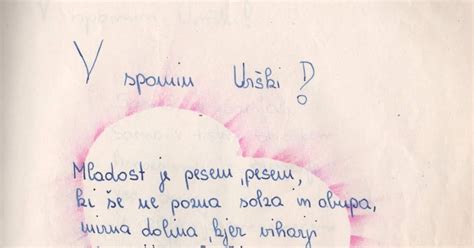 V spomin Urški!
Mladost je pesem, pesem,
ki še ne pozna solza in obupa,
mirna dolina, kjer viharji